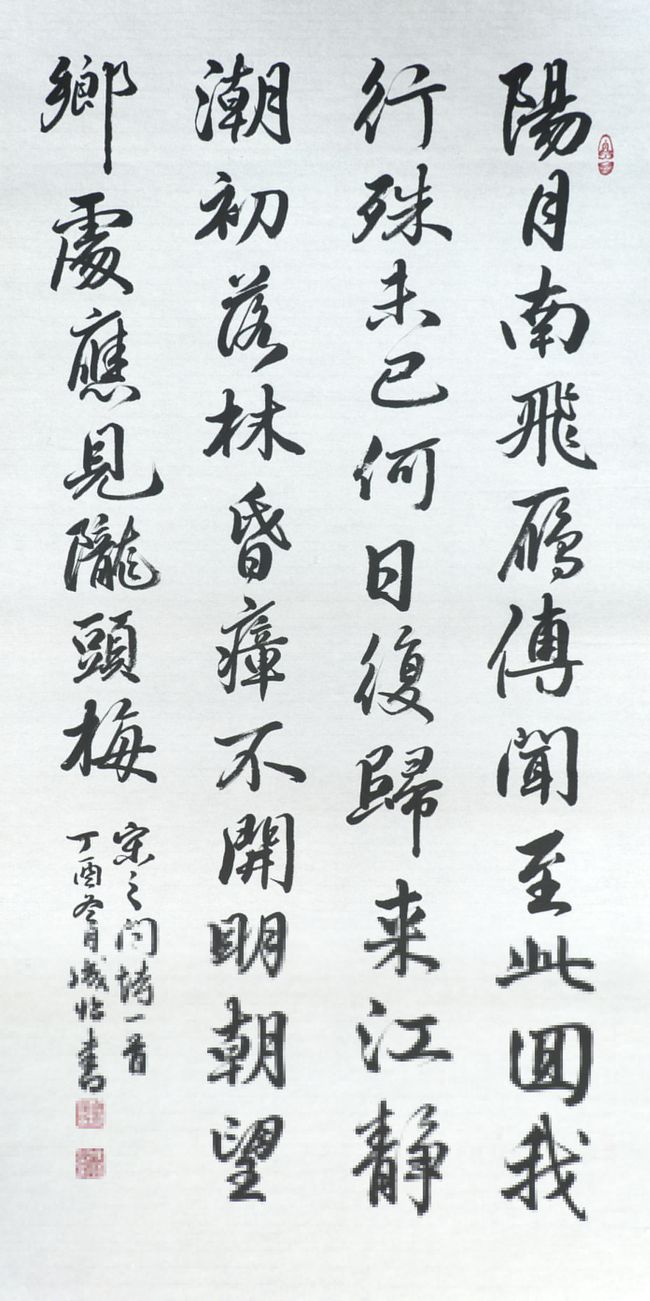 陽月南飛鴈傳聞至此囬我
行殊未已何日復歸来江静
潮初落林昏瘴不開明朝望
鄉處應見隴頭梅
宋之问诗一首
丁酉冬月書